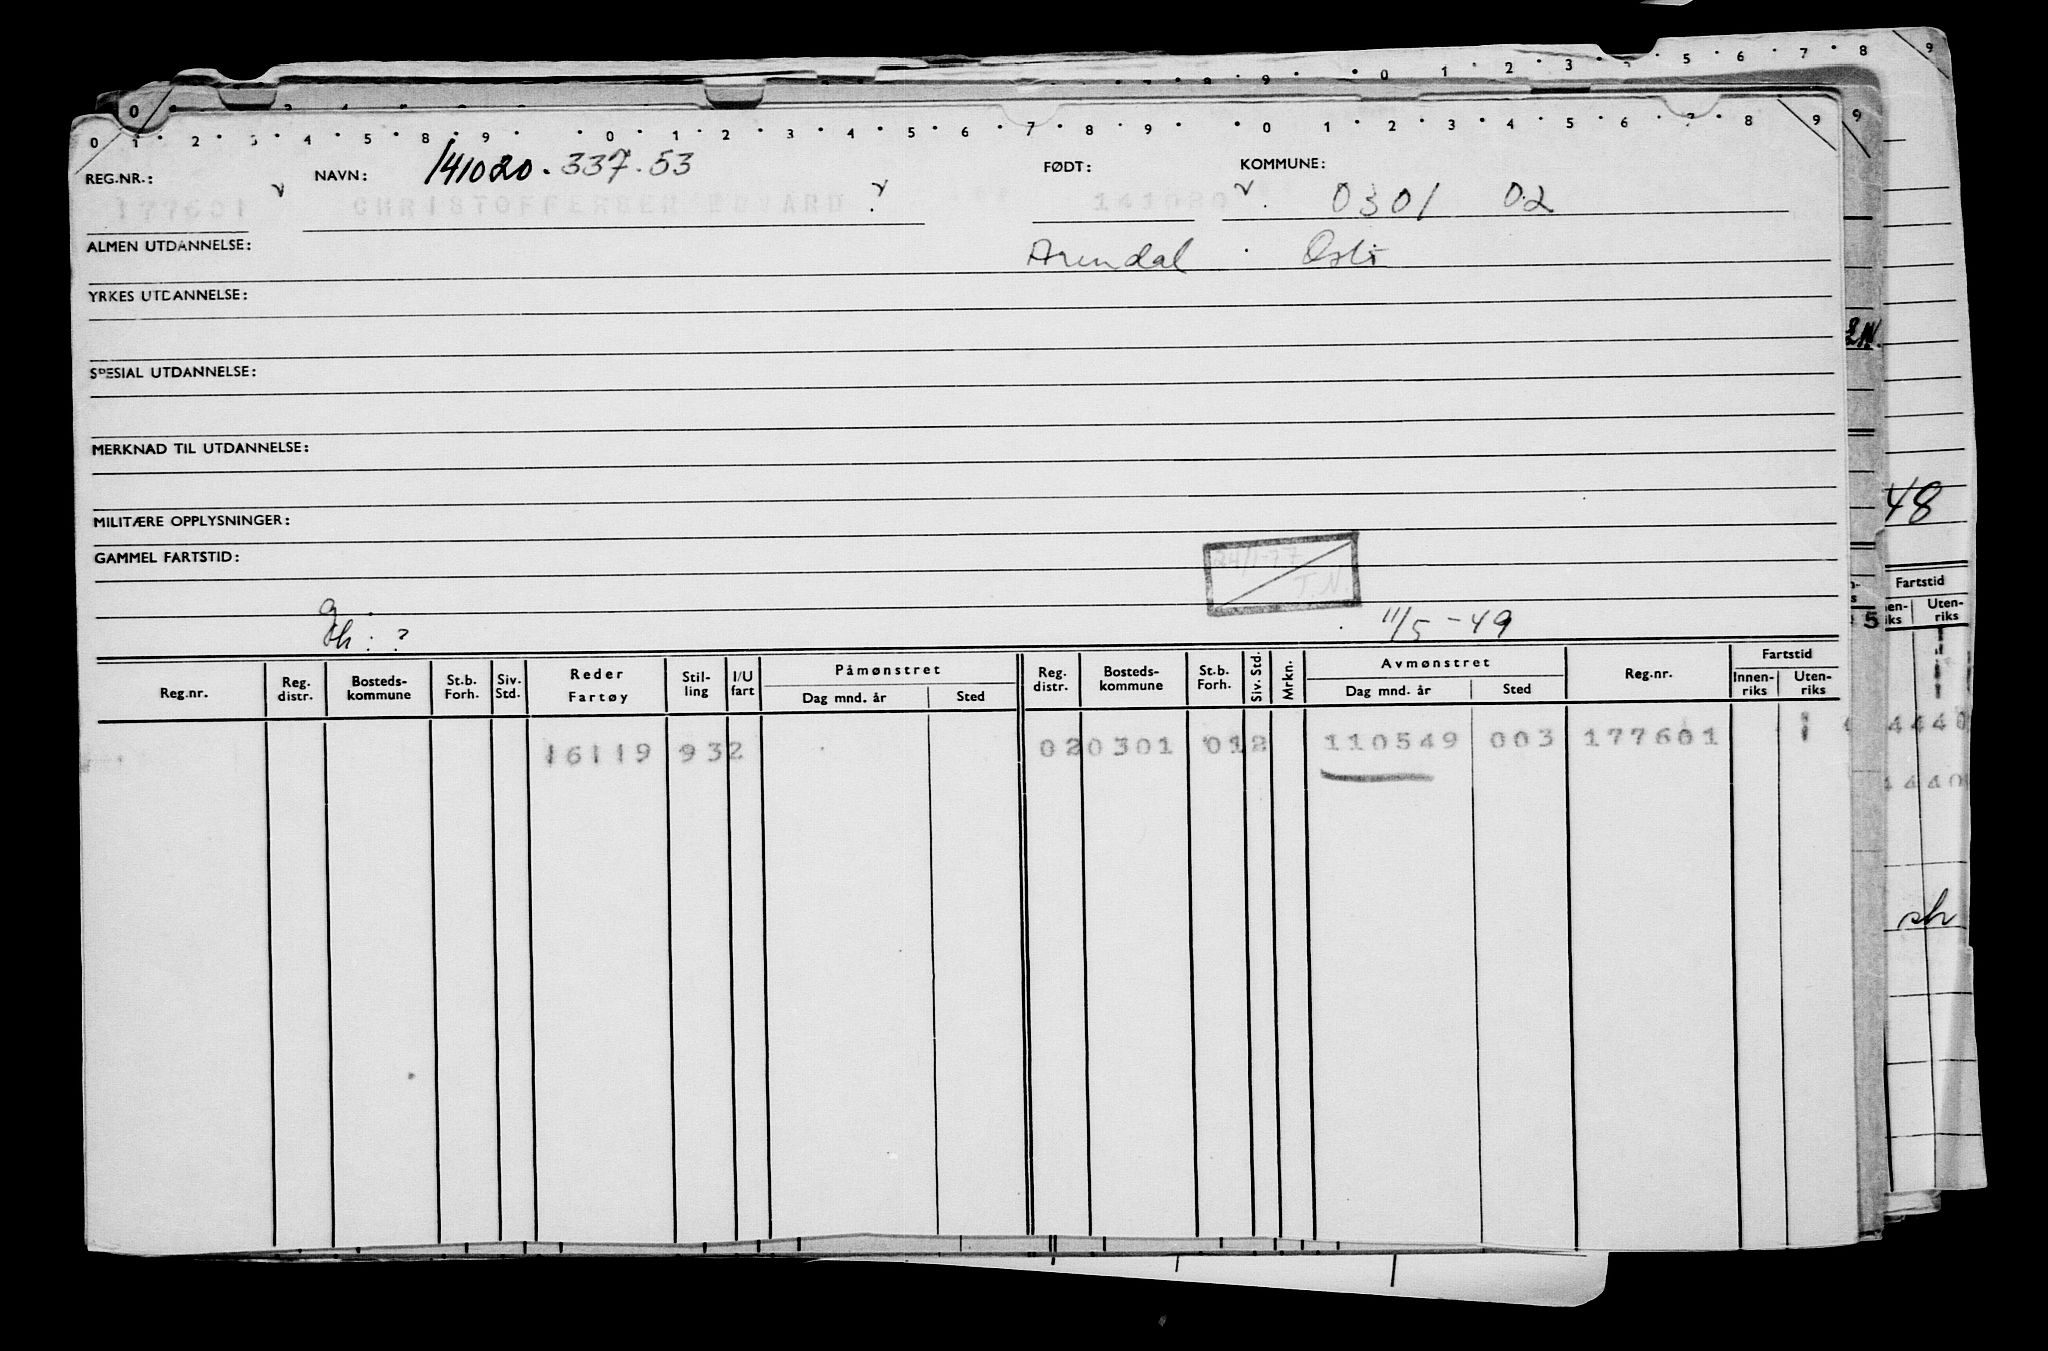 0 1 2 3 4 5 8 9 0 1 2 3 4 5 6 7 8 9 0 1 2 3 4 5 6 7 8 9
REG.NR.: NAVN: 141020.337.53 FØDT: KOMMUNE:
177601 CHRISTOFFERSEN EDVARD 141020 0301 02
ALMEN UTDANNELSE: Arendal Oslo
YRKES UTDANNELSE:
SPESIAL UTDANNELSE:
MERKNAD TIL UTDANNELSE:
MILITÆRE OPPLYSNINGER:
GAMMEL FARTSTID:
T.N.
11/5-49
Reg.nr. Reg. distr. Bosteds-kommune St.b. Forh. Siv. Std. Reder Fartøy Stil-ling I/U fart Påmønstret Dag mnd. år Sted Reg. distr. Bosteds-kommune St.b. Forh. Siv. Std. Mrkn. Avmønstret Dag mnd. år Sted Reg.nr. Fartstid Innen-riks Uten-riks
16119 932 02 0301 012 110549 003 177601 1
48
Fartstid
Uten-riks
5
4440
4440
sh